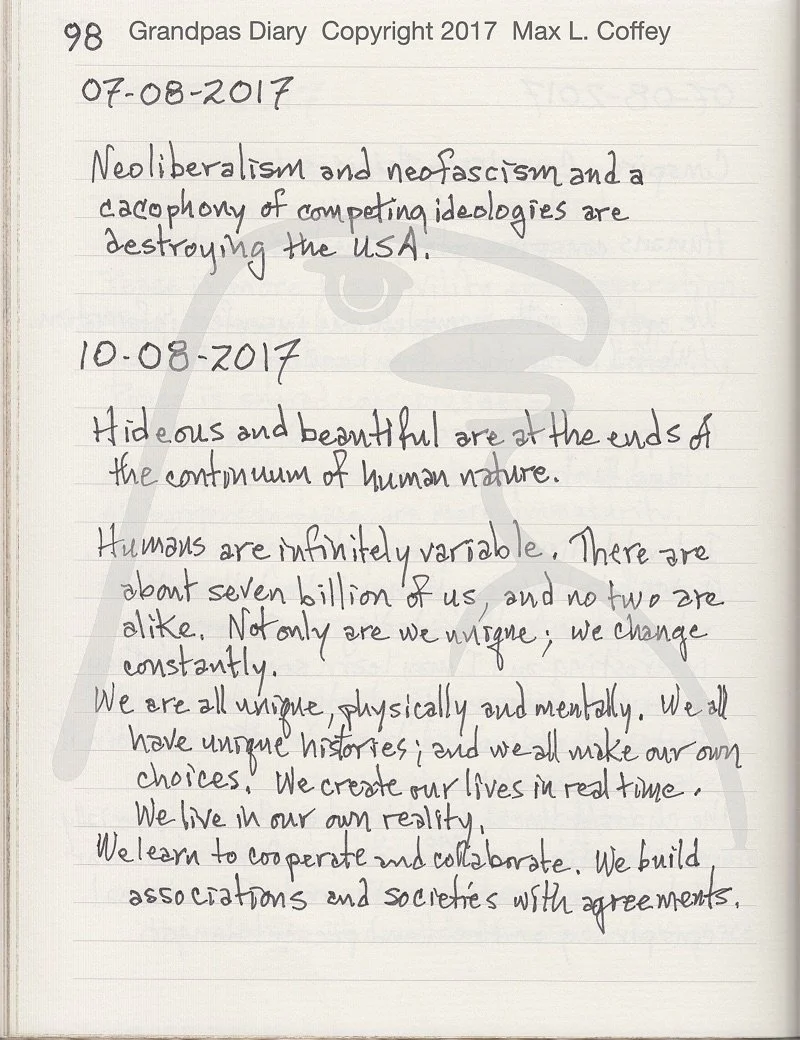 98 Grandpas Diary Copyright 2017 Max L. Coffey
07-08-2017
Neoliberalism and neofascism and a
cacophony of competing ideologies are
destroying the USA.
10-08-2017
Hideous and beautiful are at the ends of
the continuum of human nature.
Humans are infinitely variable. There are
about seven billion of us, and no two are
alike. Not only are we unique; we change
constantly.
We are all unique, physically and mentally. We all
have unique histories; and we all make our own
choices. We create our lives in real time.
We live in our own reality.
We learn to cooperate and collaborate. We build
associations and societies with agreements.